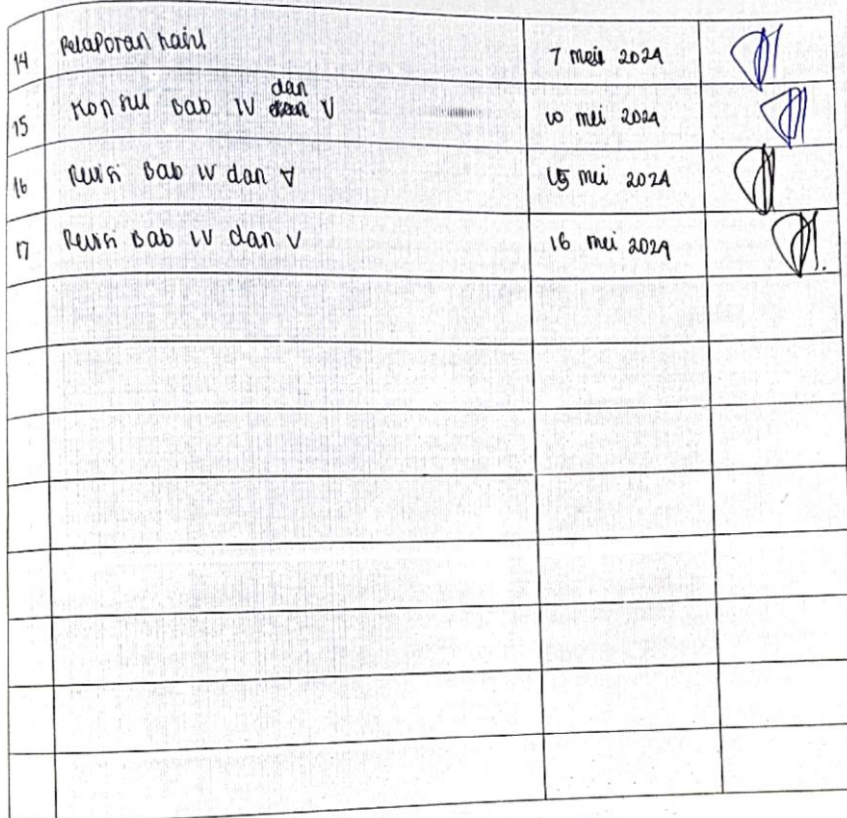 14 Pelaporan hasil 7 mei 2024
15 Konsul Bab IV dan V 10 mei 2024
16 Revisi Bab IV dan V 15 mei 2024
17 Revisi Bab IV dan V 16 mei 2024